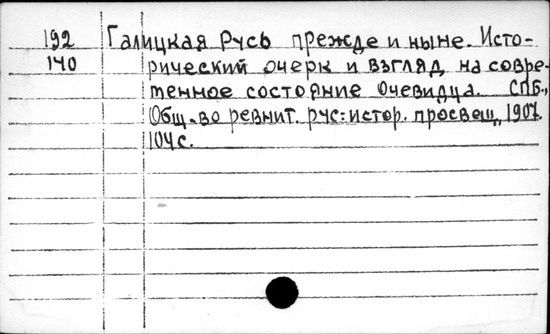 192 Галицкая Русь прежде и ныне. Исто-
140 рический очерк и взгляд на совре-
менное состояние очевидца. СПБ.,
Общ-во ревнит. рус. истор. просвещ, 1907.
104с.